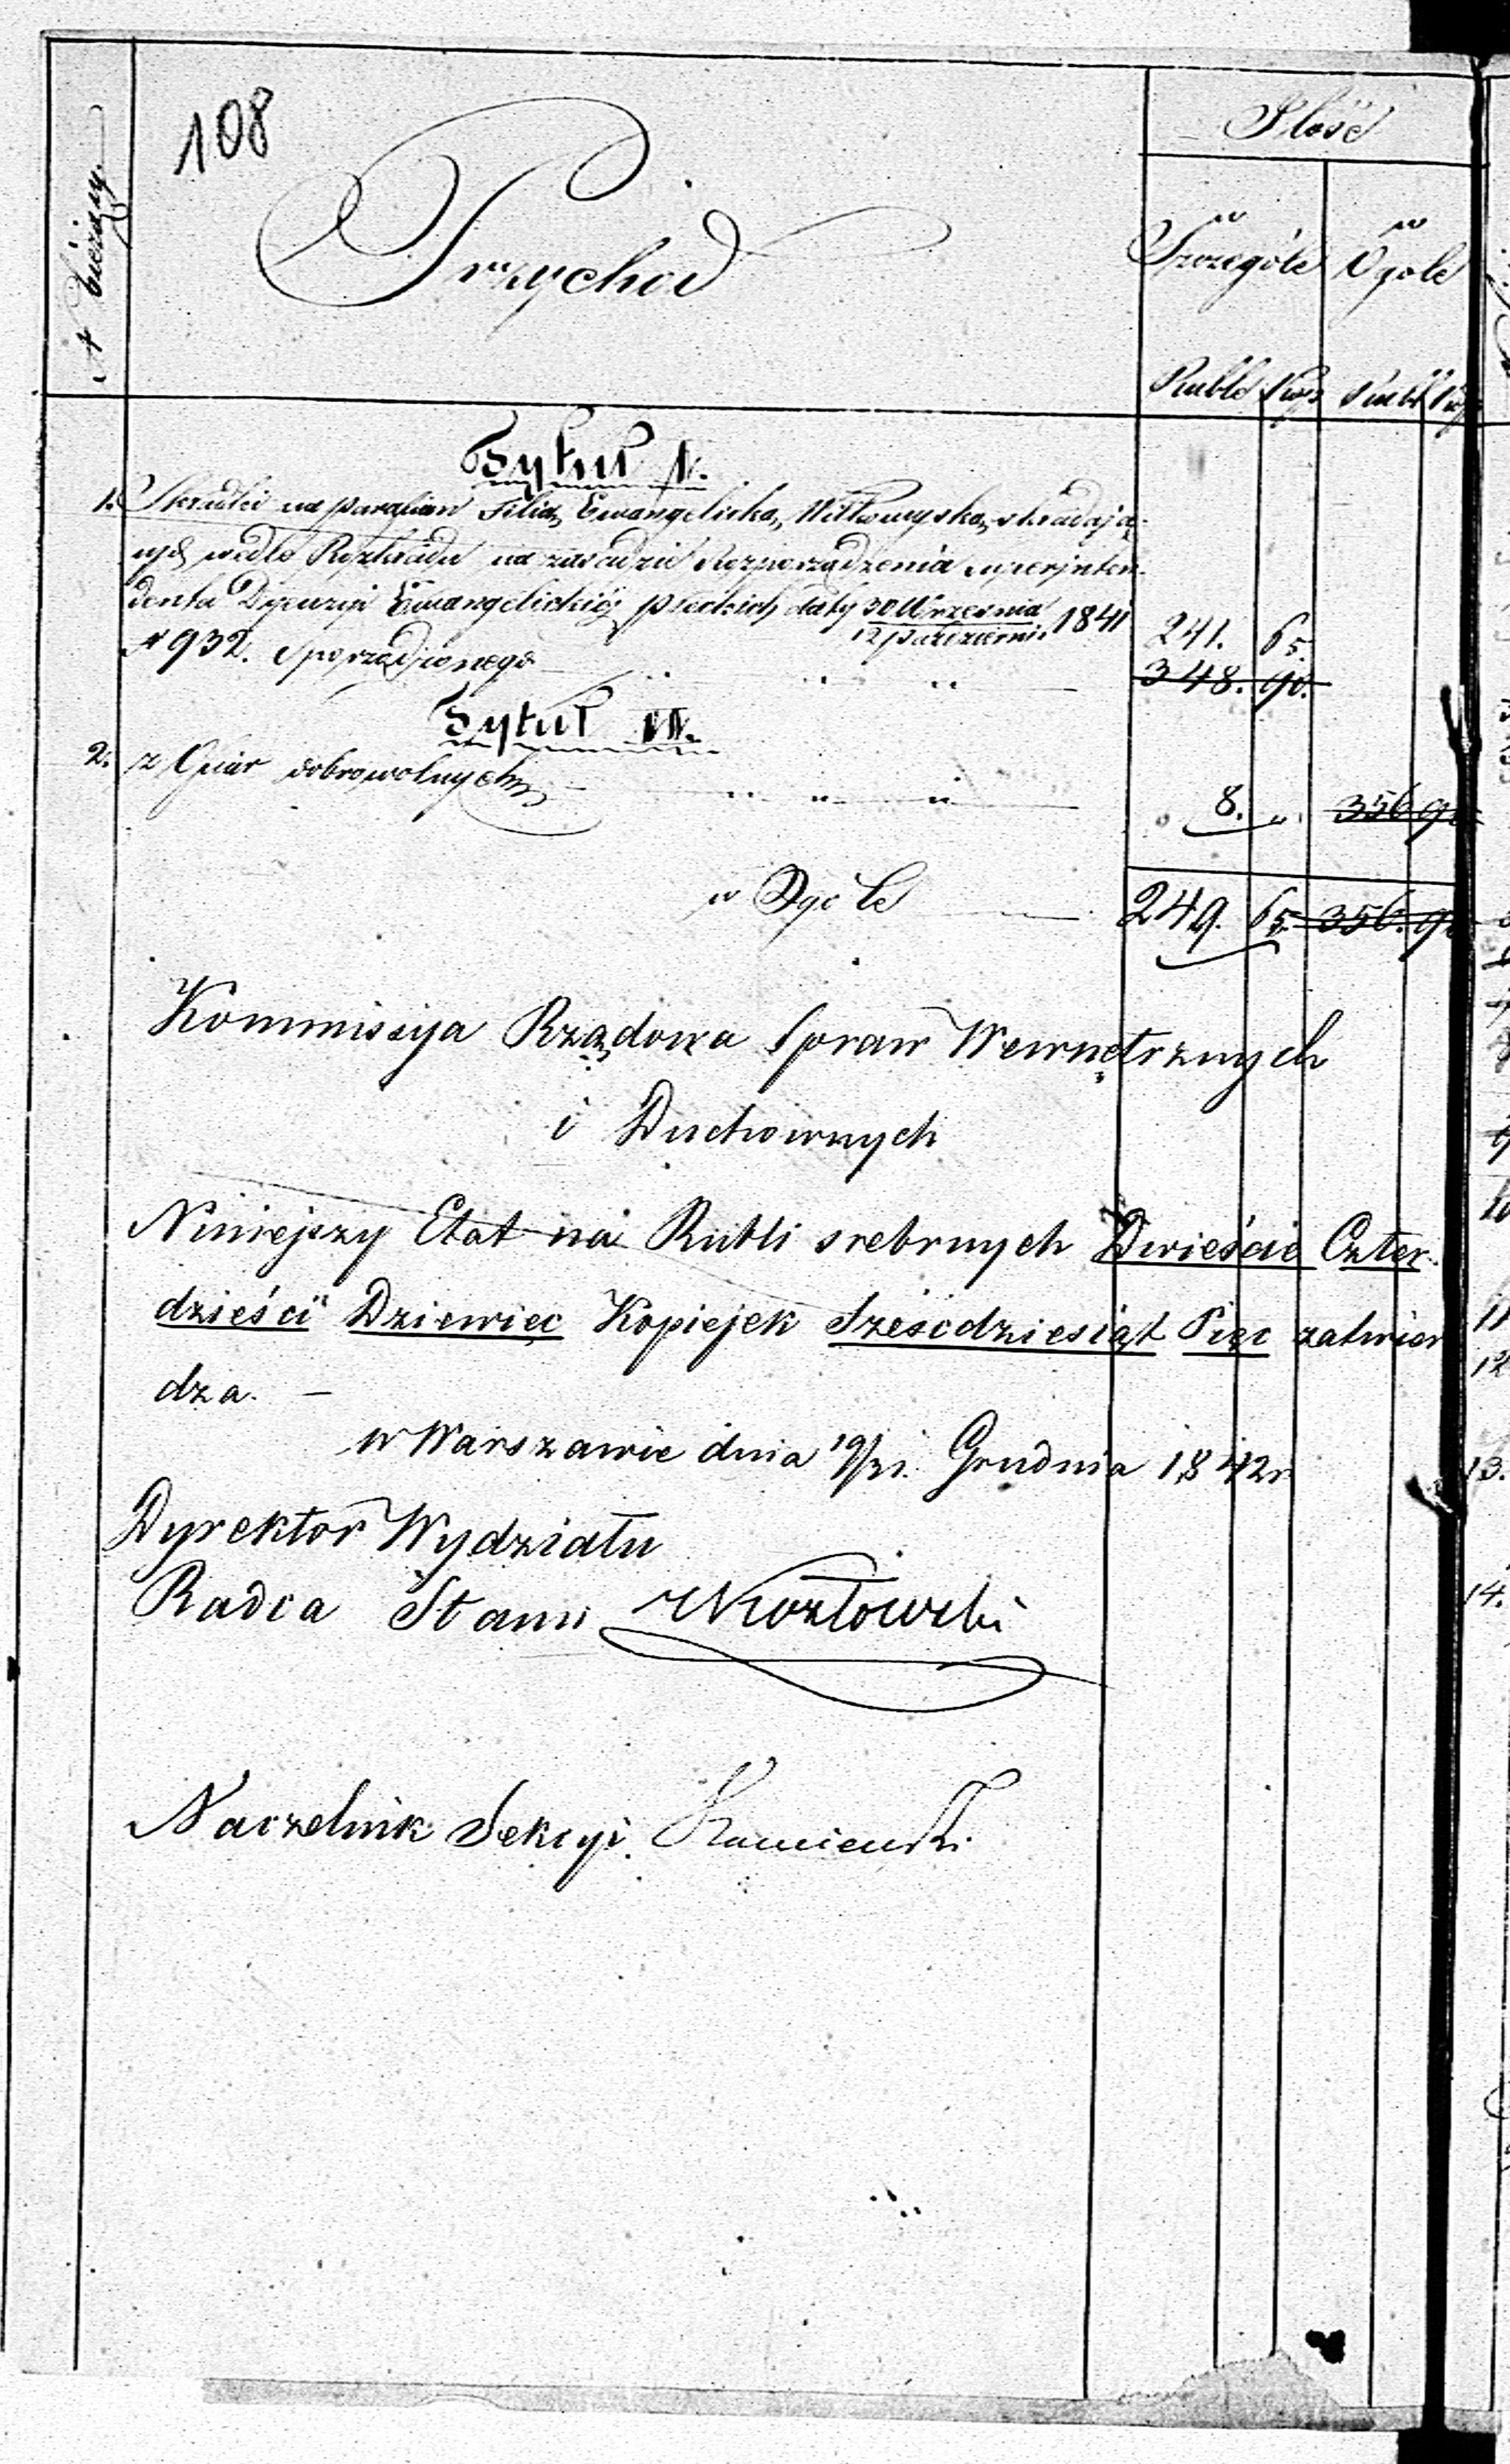 108
N bieżący.
Przychod
Ilość
w Szczególe
w Ogóle
Ruble Kop
Ruble Kop
Tytuł I.
1. Składki na parafian Filią Ewangelicką, składają-
cych wedle Rozkładu na zasadzie Rozporządzenia Superjnten-
denta Dyecezyi Ewangelickiéj Płockiéj daty 30 Września / 12 Październi. 1841
N 932. Sporządzonego
241. 65.
348. 90.
Tytuł VI.
2. z Ofiar dobrowolnych
8. „ 356 90
w Ogóle
249. 65. 356. 90
Kommissya Rządowa Spraw Wewnętrznych
i Duchownych
Niniejszy Etat na Rubli srebrnych Dwieście Czter-
dzieści Dziewięc Kopiejek Sześcdziesiąt Pięc zatwier
dza. —
w Warszawie dnia 19/31. Grudnia 1842 r
Dyrektor Wydziału
Radca Stanu Kozłowski
Naczelnik Sekcyi.